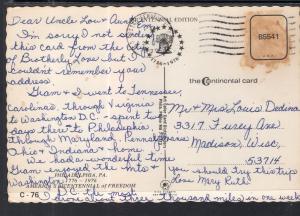 BICENTENNIAL EDITION
Dear Uncle Low & Aunt
I'm sorry I not sending
this card from the City
of Brotherly Love but I
couldn't remember your
address.
Gram & I went to Tennessee,
Carolinas, through Virginia
to Washington D.C. spent two
days there to Philadelphia,
through Maryland, Pennsylvania
Ohio & Indiana & home.
We had a wonderful time
Gram enjoyed the Mts. &
Washington.
I drove almost three thousand miles in one week
PHILADELPHIA, PA.
1776 - 1976
BICENTENNIAL OF FREEDOM
C-76
1776-1976
the continental card
B5541
Mr & Mrs Louis Dedina
3317 Furey Ave
Madison, Wisc,
53714
you should Try this trip
Love Mary Ruth